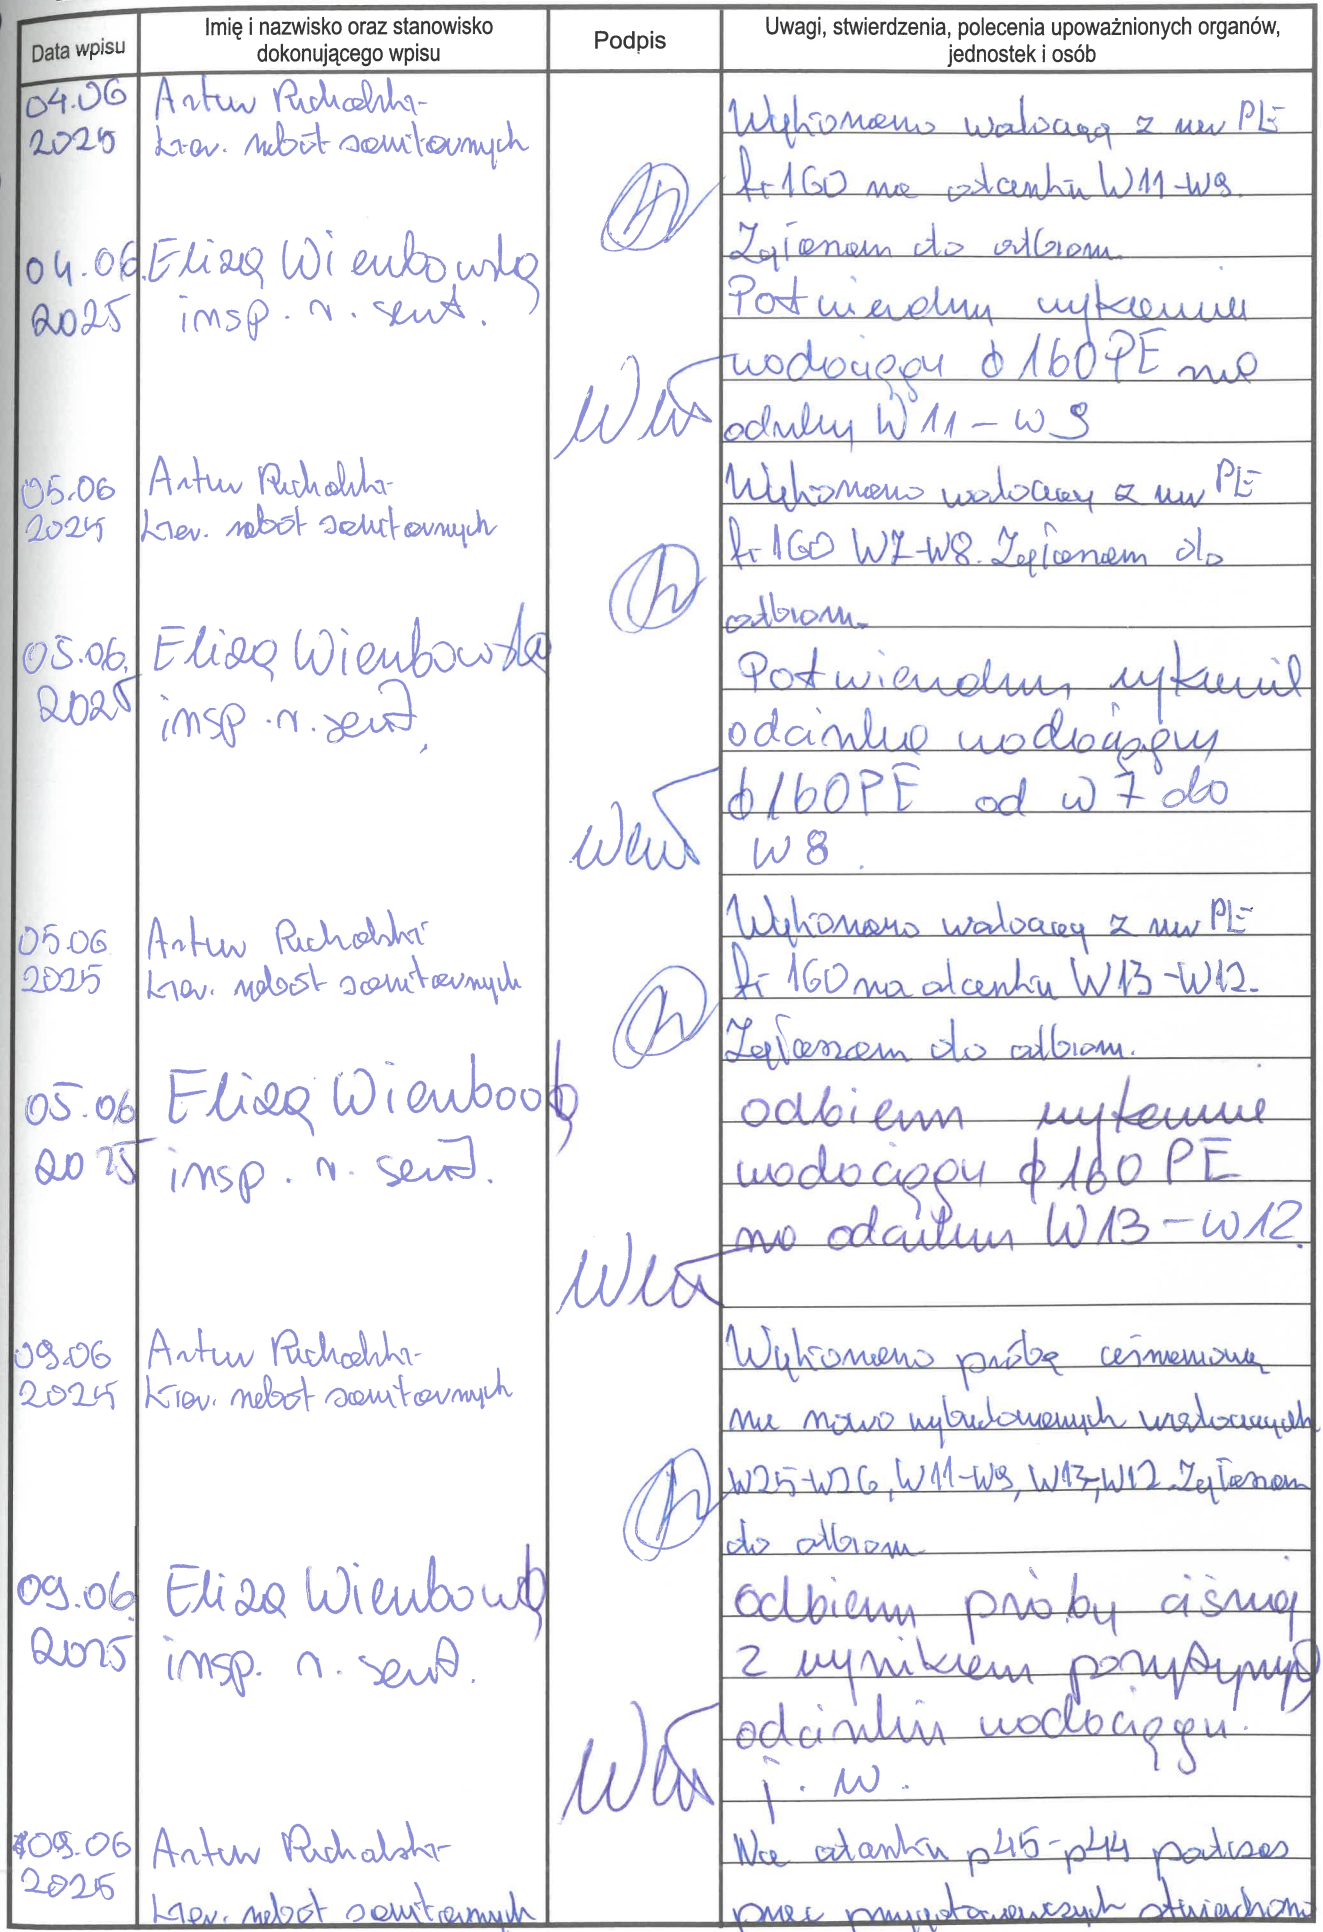 Data wpisu
Imię i nazwisko oraz stanowisko
dokonującego wpisu
Podpis
Uwagi, stwierdzenia, polecenia upoważnionych organów,
jednostek i osób
04.06
2025
Artur Puchalski
kier. robót sanitarnych
Wykonano wodociąg z rur PE
fi 160 na odcinku W11-W9.
Zgłaszam do odbioru.
04.06.
2025
Eliza Wienbowska
insp. r. sanit.
Potwierdzam wykonanie
wodociągu ϕ 160 PE na
odcinku W11 - W9
05.06
2025
Artur Puchalski
kier. robót sanitarnych
Wykonano wodociąg z rur PE
fi 160 W7-W8. Zgłaszam do
odbioru.
05.06.
2025
Eliza Wienbowska
insp. r. sanit.
Potwierdzam wykonanie
odcinka wodociągu
ϕ 160 PE od W7 do
W8.
05.06
2025
Artur Puchalski
kier. robót sanitarnych
Wykonano wodociąg z rur PE
fi 160 na odcinku W13-W12.
Zgłaszam do odbioru.
05.06
2025
Eliza Wienbowska
insp. r. sanit.
odbieram wykonanie
wodociągu ϕ 160 PE
na odcinku W13 - W12.
09.06
2025
Artur Puchalski
kier. robót sanitarnych
Wykonano próbę ciśnieniową
na nowo wybudowanych wodociągach
W25-W26, W11-W9, W13-W12. Zgłaszam
do odbioru
09.06.
2025
Eliza Wienbowska
insp. r. sanit.
odbieram próby ciśnieniowe
z wynikiem pozytywnym
odcinków wodociągu
j.w.
09.06
2025
Artur Puchalski
kier. robót sanitarnych
Na odcinku p45-p44 podczas
prac przygotowawczych stwierdzono